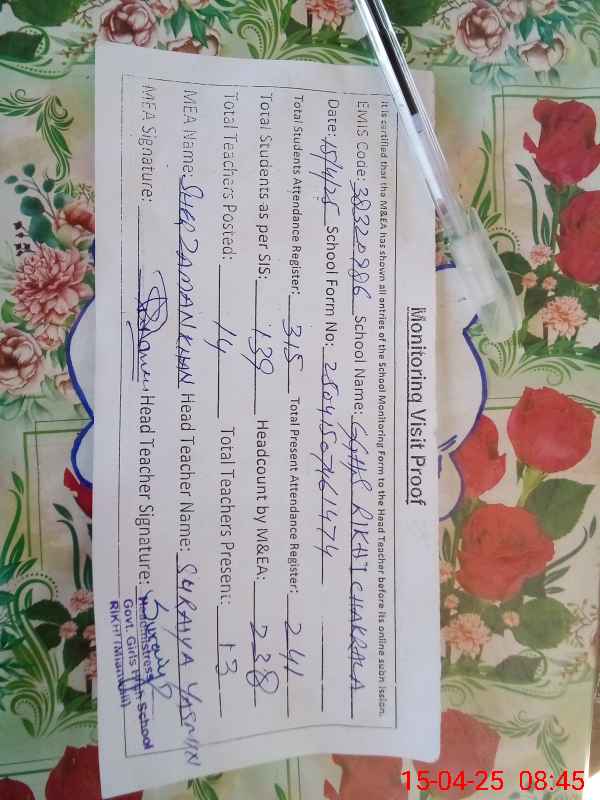 Monitoring Visit Proof
It is certified that the M&EA has shown all entries of the School Monitoring Form to the Head Teacher before its online submission.
EMIS Code: 38320986 School Name: GGHS RIKHI CHAKRALA
Date: 15/4/25 School Form No: 25041507161474
Total Students Attendance Register: 315 Total Present Attendance Register: 241
Total Students as per SIS: 139 Headcount by M&EA: 238
Total Teachers Posted: 14 Total Teachers Present: 13
MEA Name: SHER ZAMAN KHAN Head Teacher Name: SURAIYA YASMIN
MEA Signature: Head Teacher Signature: Suraiya
Headmistress
Govt. Girls High School
RIKHI (Mianwali)
15-04-25 08:45